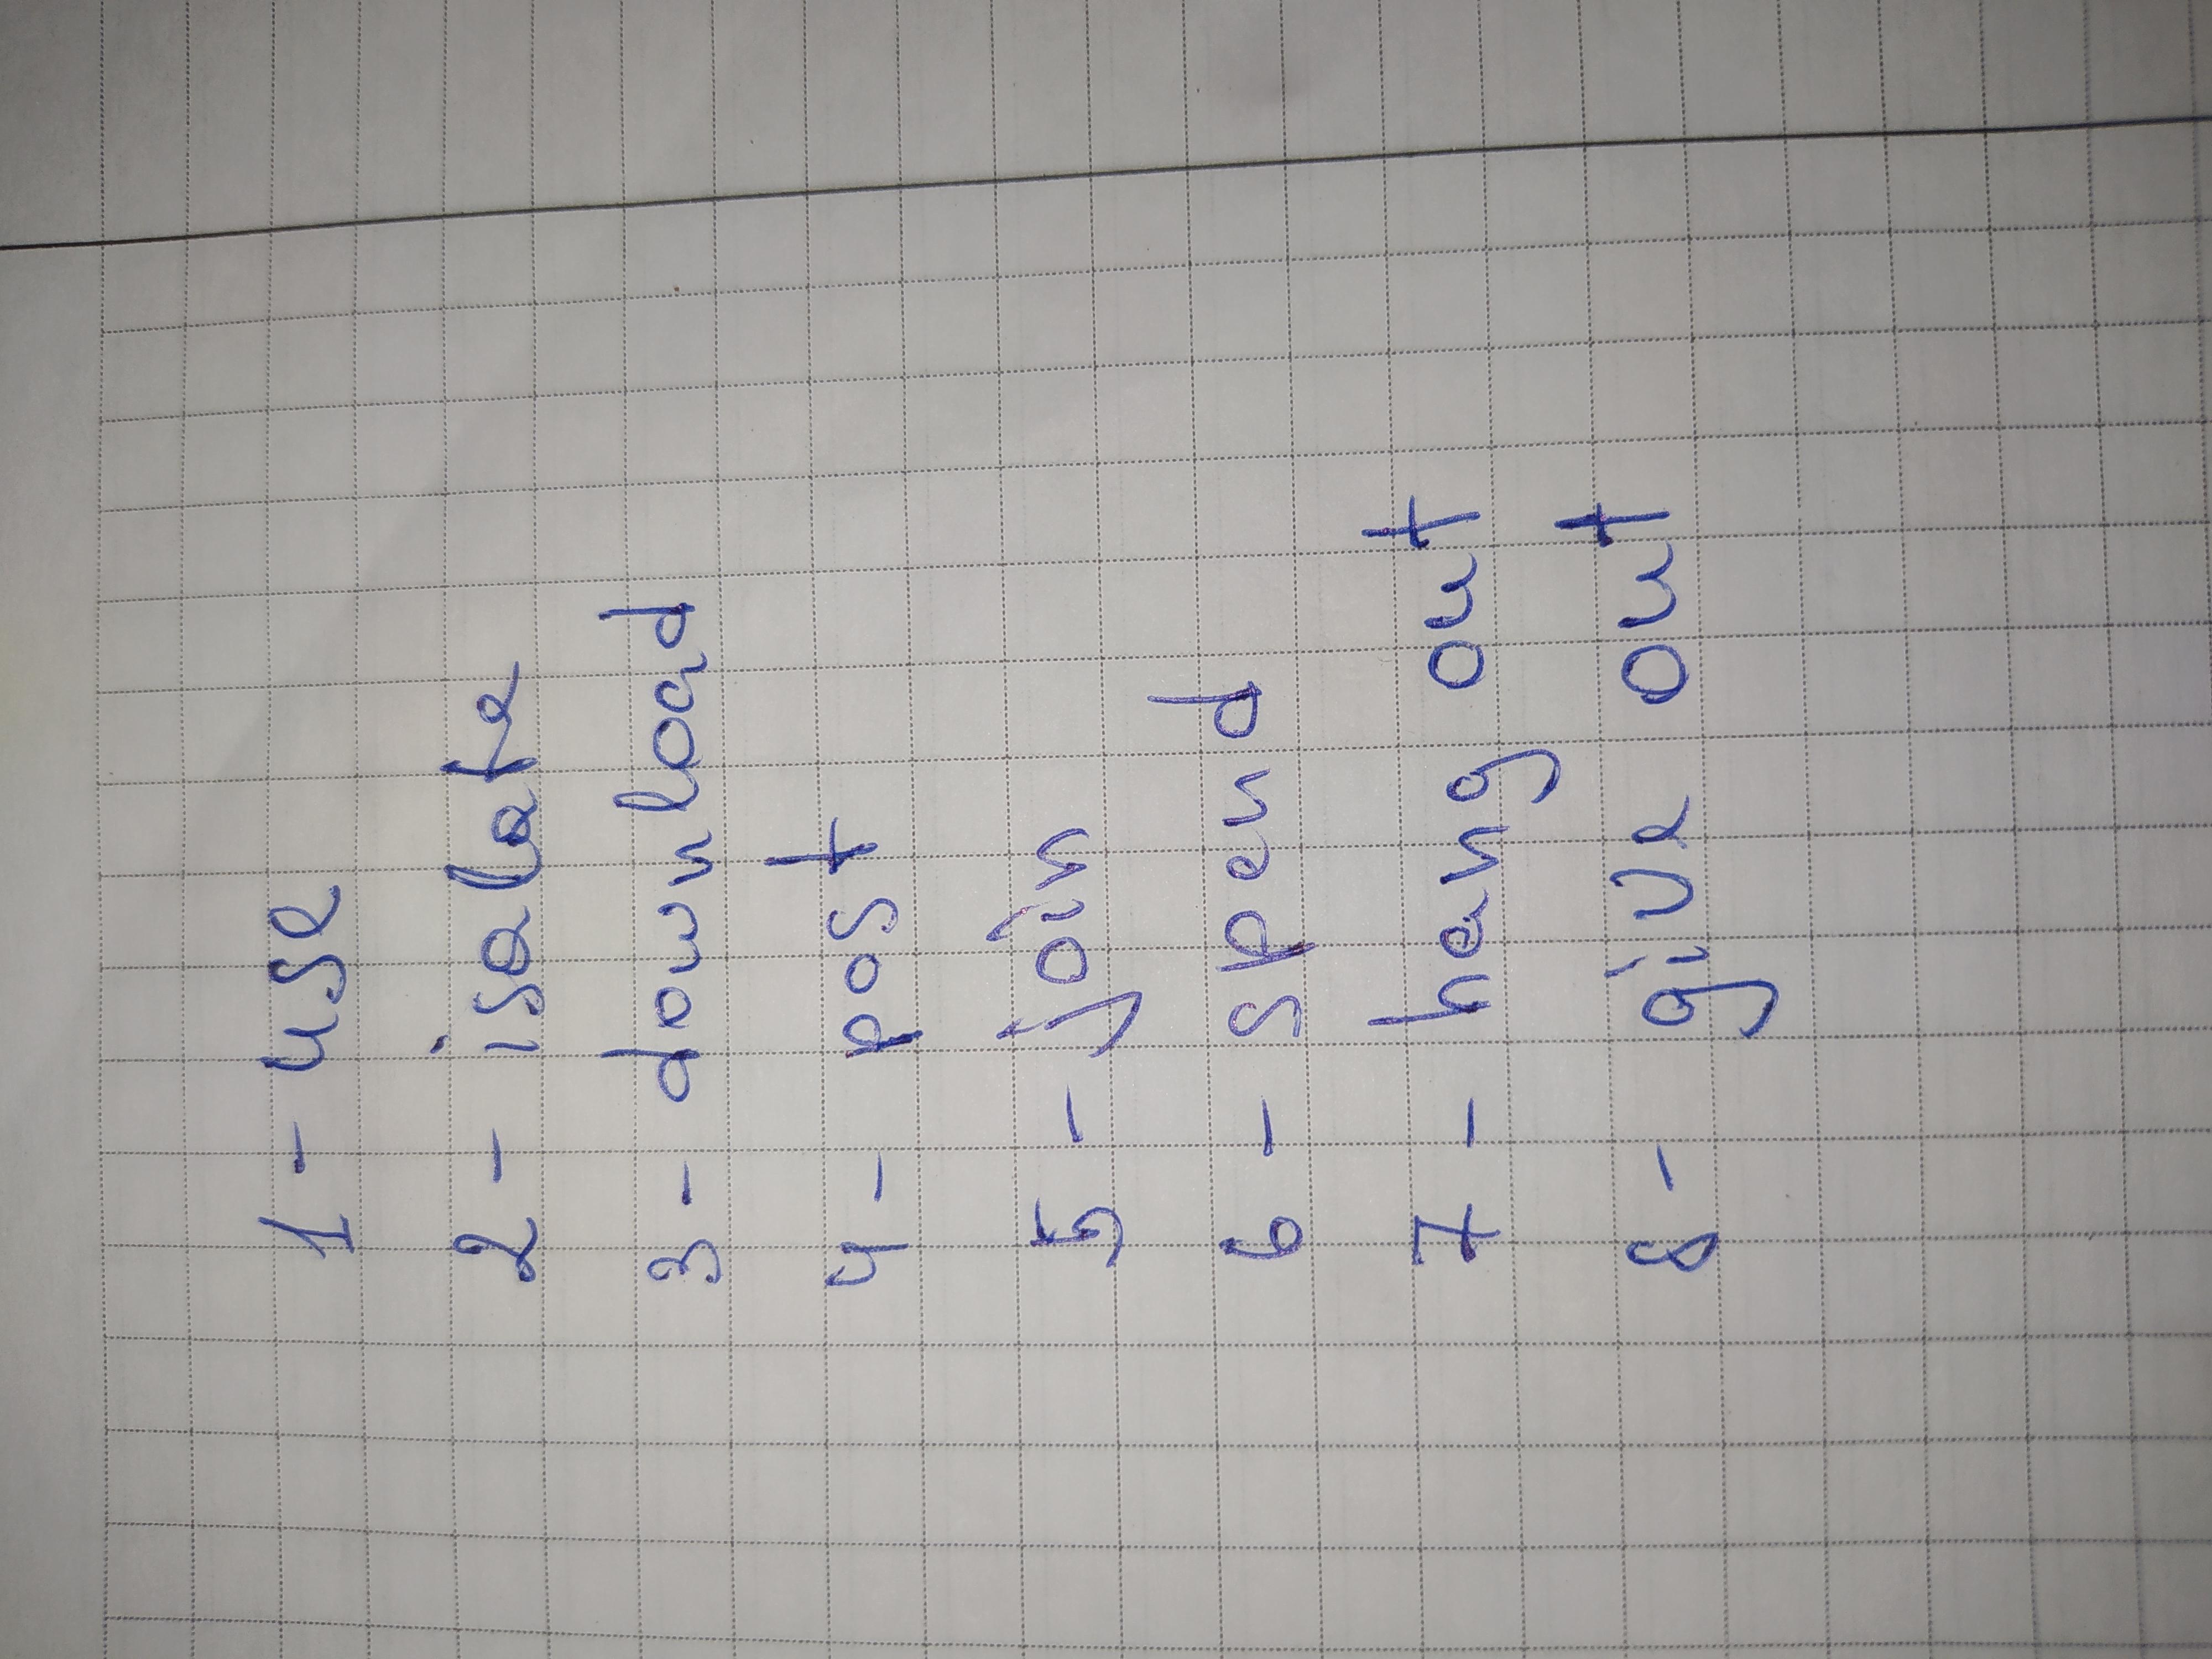 1 - use
2 - isolate
3 - download
4 - post
5 - join
6 - spend
7 - hang out
8 - give out